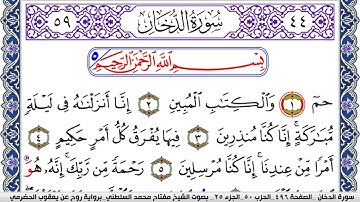 ٤٤ سُورَةُ الدُّخَانِ ٥٩
بِسْمِ اللَّهِ الرَّحْمَٰنِ الرَّحِيمِ
حمٓ ١ وَالْكِتَابِ الْمُبِينِ ٢ إِنَّا أَنزَلْنَاهُ فِي لَيْلَةٍ
مُّبَارَكَةٍ إِنَّا كُنَّا مُنذِرِينَ ٣ فِيهَا يُفْرَقُ كُلُّ أَمْرٍ حَكِيمٍ ٤
أَمْرًا مِّنْ عِندِنَا إِنَّا كُنَّا مُرْسِلِينَ ٥ رَحْمَةً مِّن رَّبِّكَ إِنَّهُ هُوَ
سورة الدخان الصفحة ٤٩٦ الحزب ٥٠ الجزء ٢٥ بصوت الشيخ مفتاح محمد السلطني برواية روح عن يعقوب الحضرمي